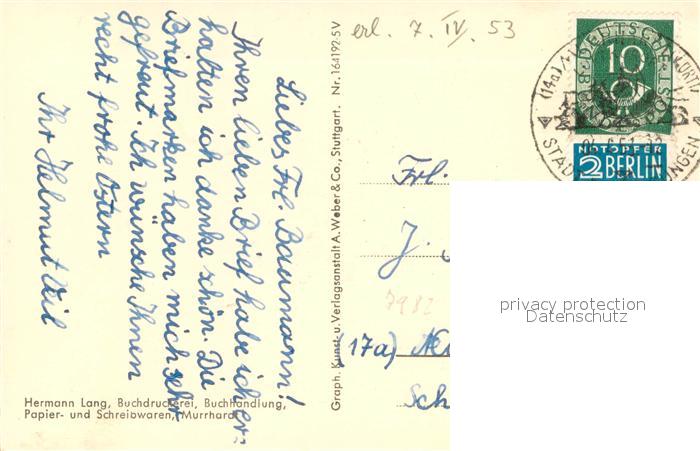 Liebes Frl. Baumann!
Ihren lieben Brief habe ich er-
halten ich danke schön. Die
Briefmarken haben mich sehr
gefreut. Ich wünsche Ihnen
recht frohe Ostern
Ihr Helmut Veil
Hermann Lang, Buchdruckerei, Buchhandlung,
Papier- und Schreibwaren, Murrhardt
Graph. Kunst- u. Verlagsanstalt A. Weber & Co., Stuttgart. Nr. 164192 SV
erl. 7. IV. 53
10
DEUTSCHE
BUNDESPOST
(14a)
NOTOPFER
2 BERLIN
Frl.
J.
7982
(17a)
Sch
privacy protection
Datenschutz